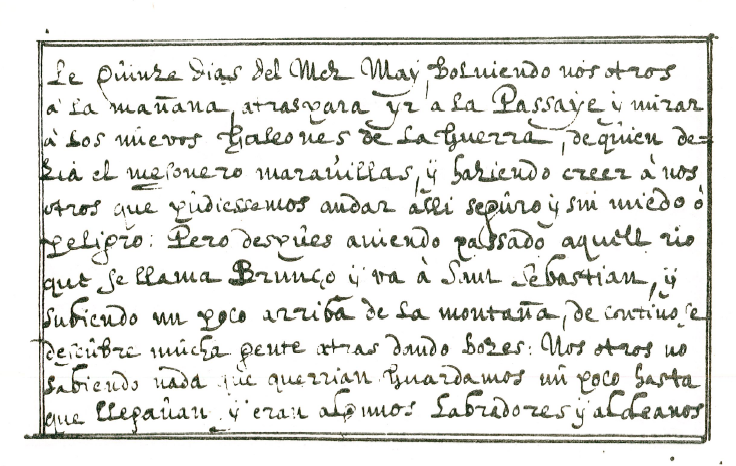 Le quinze dias del Mez May, bolviendo nos otros
à la mañana, atras para yr a la Passaje ÿ mirar
à los nüevos Galeones de la Guerra, de quien de=
zia el mesonero maravillas, ÿ haziendo creer à nos
otros que püdiessemos andar alli següro ÿ sin miedo ò
peligro: Pero despües aviendo passado aquell rio
que se llama Brunço ÿ va à Sant Sebastian, ÿ
subiendo un poco arriba de la montaña, de contino se
descübre mücha gente atras dando bozes: Nos otros no
sabiendo nada que querrian, Guardamos un poco hasta
que llegavan ÿ eran algunos Labradores ÿ aldeanos